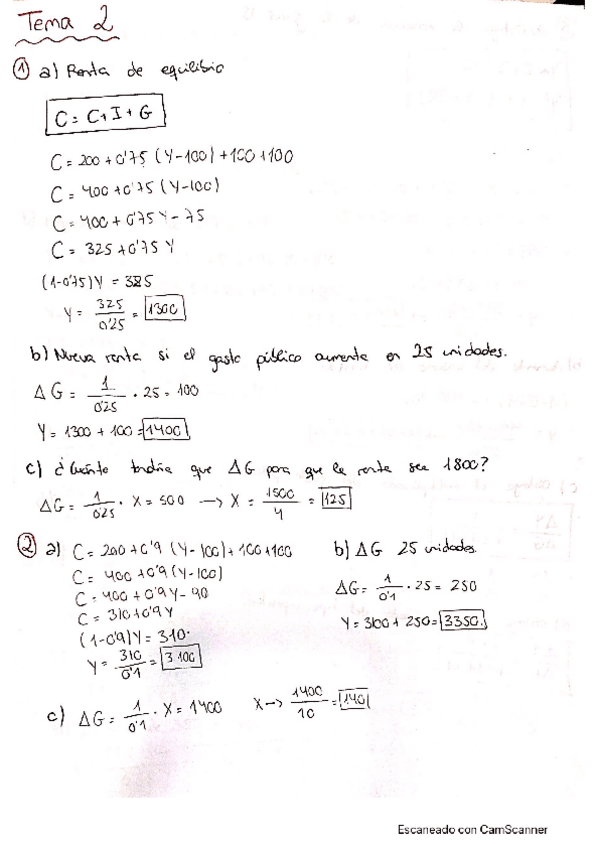 Tema 2
① a) Renta de equilibrio
C = C+I+G
C = 200 + 0'75 (Y-100) + 100 + 100
C = 400 + 0'75 (Y-100)
C = 400 + 0'75 Y - 75
C = 325 + 0'75 Y
(1-0'75)Y = 325
Y = 325/0'25 = 1300
b) Nueva renta si el gasto público aumenta en 25 unidades.
ΔG = 1/0'25 · 25 = 100
Y = 1300 + 100 = 1400
c) ¿Cuánto tendría que ΔG para que la renta sea 1800?
ΔG = 1/0'25 · X = 500 → X = 1500/4 = 125
② a) C = 200 + 0'9 (Y-100) + 100 + 100
C = 400 + 0'9 (Y-100)
C = 400 + 0'9 Y - 90
C = 310 + 0'9 Y
(1-0'9)Y = 310.
Y = 310/0'1 = 3.100
b) ΔG 25 unidades.
ΔG = 1/0'1 · 25 = 250
Y = 3100 + 250 = 3350.
c) ΔG = 1/0'1 · X = 1400 X → 1400/10 = 140
Escaneado con CamScanner